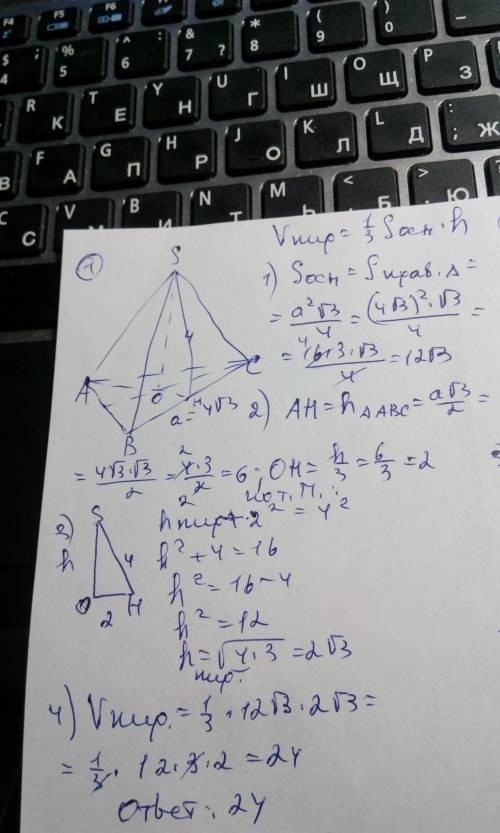 F4 F5 F6 F7 F8 F9 F10
$ ; 4
% 5
^ : 6
& ? 7
* 8
( 9
) 0
R К
T Е
Y Н
U Г
I Ш
O Щ
P З
F А
G П
H Р
J О
K Л
L Д
: ; Ж
C С
V М
B И
N Т
M Ь
< Б
> Ю
① Vпир = 1/3 Sосн · h
S
4
A
O
H
C
B
a = 4√3
1) Sосн = Sправ. Δ =
= a²√3/4 = (4√3)² · √3/4 =
= 16·3·√3/4 = 12√3
2) AH = hΔABC = a√3/2 =
= 4√3·√3/2 = 4·3/2 = 6; OH = h/3 = 6/3 = 2
3)
S
h
4
O
H
2
по т. П.:
hпир + 2² = 4²
h² + 4 = 16
h² = 16 - 4
h² = 12
h = √4·3 = 2√3
пир.
4) Vпир. = 1/3 · 12√3 · 2√3 =
= 1/3 · 12·3·2 = 24
Ответ: 24